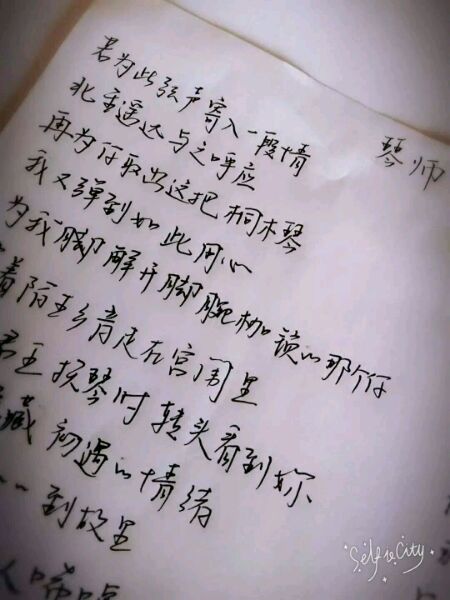 琴师
若为此弦声寄入一段情
北星遥远与之呼应
再为你取出这把桐木琴
我又弹到如此用心
为我脚解开脚腕枷锁的那个你
着陌生乡音走在宫闱里
君王抚琴时转头看到妳
藏初遇的情绪
到故里
人唏嘘
Selfie City